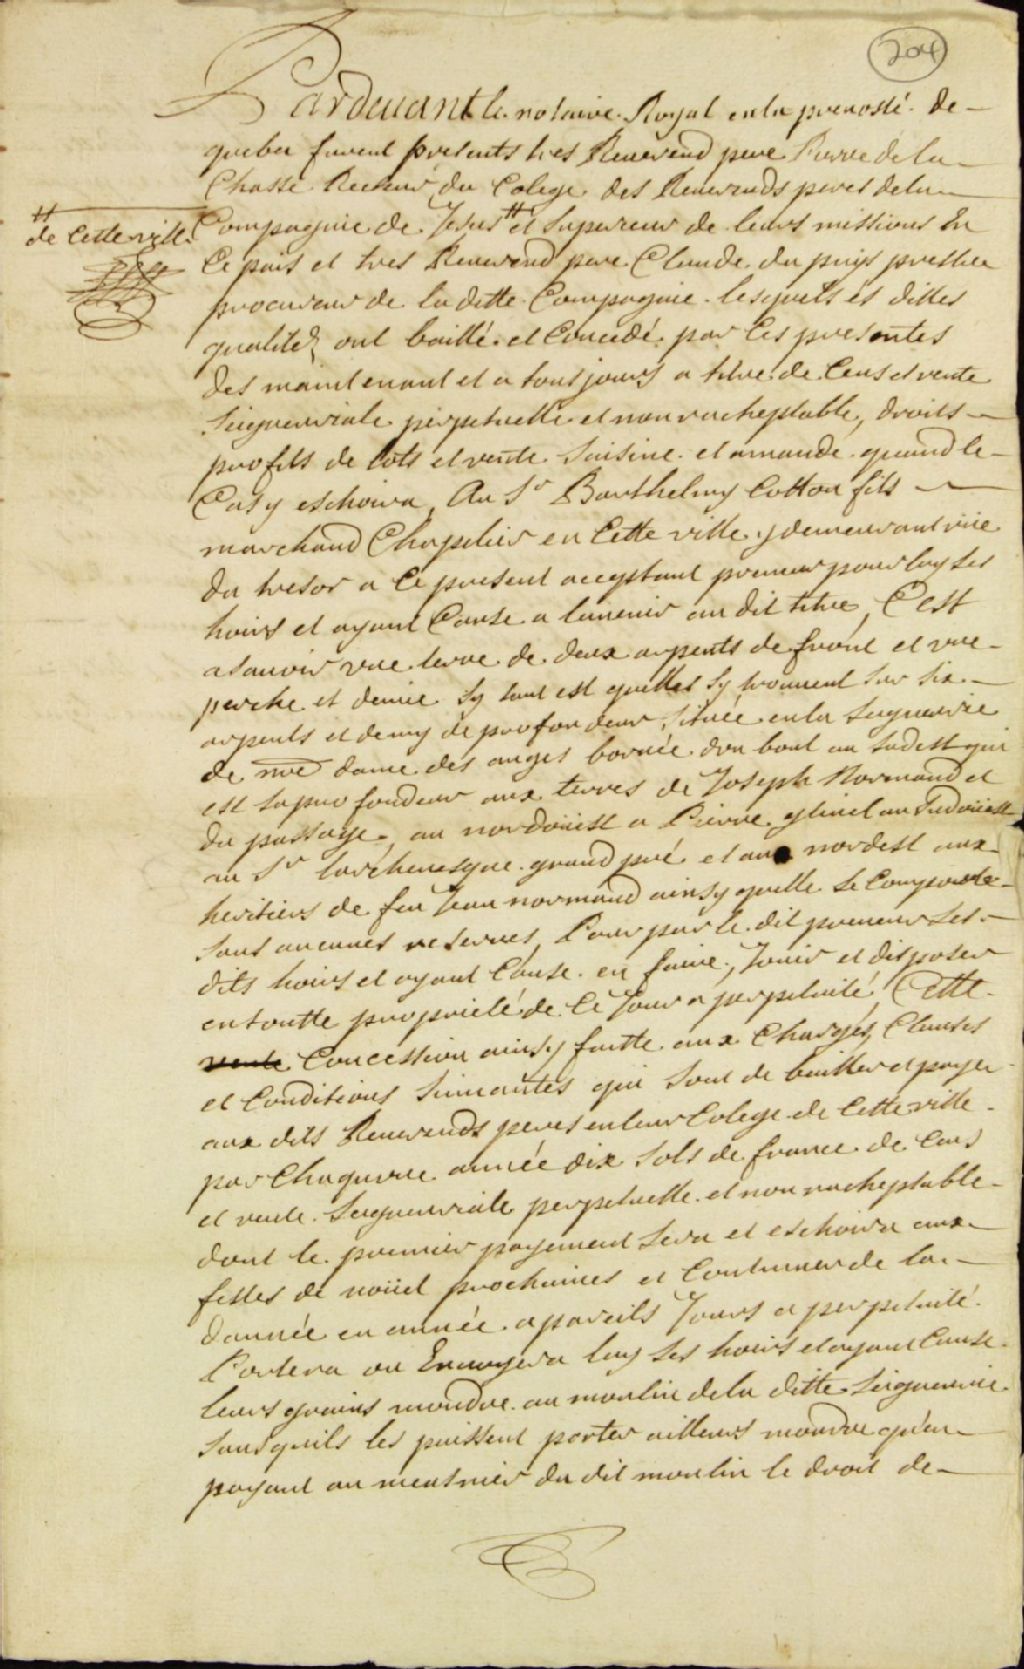 204
Pardevant le notaire Royal en la prevosté de
quebec furent presents tres Reverend pere Pierre de la
Chasse Recteur du Colege des Reverends peres de la
Compagnie de Jesus # et superieur de leurs missions En
# de cette ville
Ce païs et tres Reverend pere Claude du puys prestre
procureur de la ditte Compagnie lesquels és dittes
qualitéz ont baillé et Concedé par Ces presentes
des maintenant et a tousjours a titre de Cens et rente
seigneuriale perpetuelle et non racheptable, droits
profits de lots et vente saisine et amande quand le
Cas y eschoira, Au Sr Barthelmy Cotton fils
marchand Chapelier en Cette ville y demeurant rüe
du tresor a Ce present acceptant preneur pour luy ses
hoirs et ayant Cause a lavenir au dit titre, C'est
asavoir une terre de deux arpents de front et une
perche et demie sy tant est quelles sy trouvent sur six
arpents et demy de profondeur située en la seigneurie
de nre dame des anges bornée d'un bout au sudest qui
est sa profondeur aux terres de Joseph Normand et
du passage, au nordoüest a Pierre glinel au sudoüest
au Sr larchevesque grand pré et au nordest aux
heritiers de feu Jean normand ainsy quelle se Comporte
sans aucunes reserves, Pour par le dit preneur ses
dits hoirs et ayant Cause en faire, Jouir et disposer
en toutte proprieté de Ce Jour a perpetuité, Cette
vente Concession ainsy faitte aux Charges, Clauses
et Conditions suivantes qui sont de bailler et payer
aux dits Reverends peres en leur Colege de Cette ville
par Chaqunne année dix sols de france de Cens
et rente seigneuriale perpetuelle et non racheptable
dont le premier payement sera et eschoira aux
festes de noüel prochaines et Continuer de la
dannée en année a pareils Jours a perpetuité
Portera ou Envoyera luy ses hoirs et ayant Cause
leurs grains moudre au moulin de la ditte seigneurie
sans quils les puissent porter ailleurs moudre qu'en
payant au meusnier du dit moulin le droit de